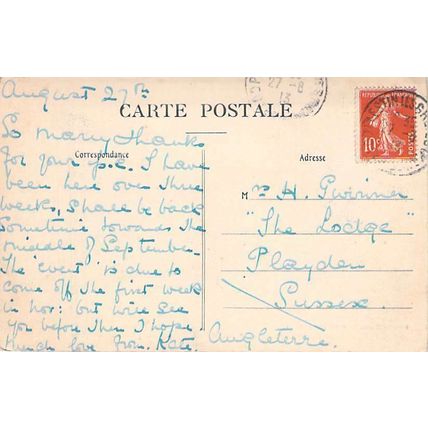 August 27th
27 -8
13
CARTE POSTALE
Correspondance
Adresse
10c
So many thanks
for your p.c. I have
been here over three
weeks, shall be back
sometime towards the
middle of September.
The 'event' is due to
come off the first week
in Nov: but will see
you before then I hope
Much love from Kate.
Mrs H.
"The Lodge"
Playden
Sussex.
Angleterre.